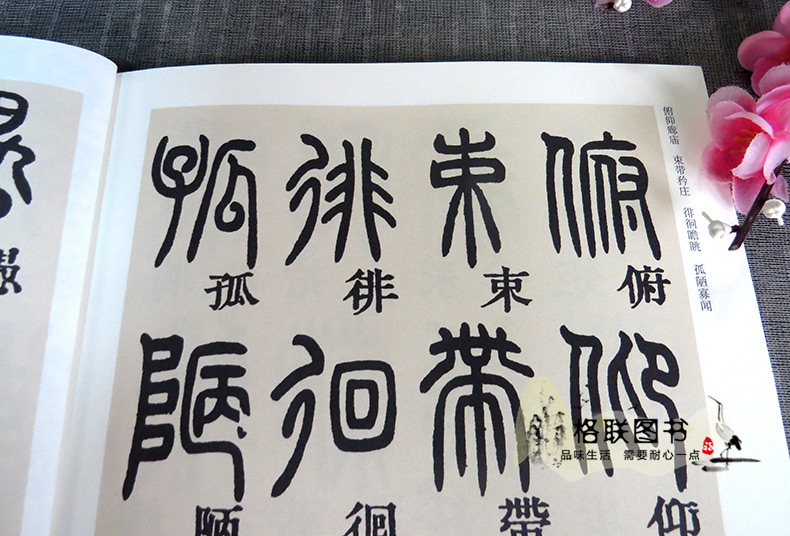 俯仰廊庙　束带矜庄　徘徊瞻眺　孤陋寡闻
俯仰
俯仰
束帶
束帶
徘徊
徘徊
孤陋
孤陋
格联图书
品味生活　需要耐心一点